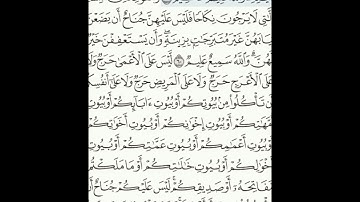 ٱلَّٰتِى لَا يَرْجُونَ نِكَاحًا فَلَيْسَ عَلَيْهِنَّ جُنَاحٌ أَن يَضَعْنَ
ثِيَابَهُنَّ غَيْرَ مُتَبَرِّجَٰتٍ بِزِينَةٍ وَأَن يَسْتَعْفِفْنَ خَيْرٌ
لَّهُنَّ وَٱللَّهُ سَمِيعٌ عَلِيمٌ لَّيْسَ عَلَى ٱلْأَعْمَىٰ حَرَجٌ
وَلَا عَلَى ٱلْأَعْرَجِ حَرَجٌ وَلَا عَلَى ٱلْمَرِيضِ حَرَجٌ وَلَا عَلَىٰٓ أَنفُسِكُمْ
أَن تَأْكُلُوا۟ مِنۢ بُيُوتِكُمْ أَوْ بُيُوتِ ءَابَآئِكُمْ أَوْ بُيُوتِ
أُمَّهَٰتِكُمْ أَوْ بُيُوتِ إِخْوَٰنِكُمْ أَوْ بُيُوتِ أَخَوَٰتِكُمْ
أَوْ بُيُوتِ أَعْمَٰمِكُمْ أَوْ بُيُوتِ عَمَّٰتِكُمْ أَوْ بُيُوتِ
أَخْوَٰلِكُمْ أَوْ بُيُوتِ خَٰلَٰتِكُمْ أَوْ مَا مَلَكْتُم
مَّفَاتِحَهُۥٓ أَوْ صَدِيقِكُمْ لَيْسَ عَلَيْكُمْ جُنَاحٌ أَن